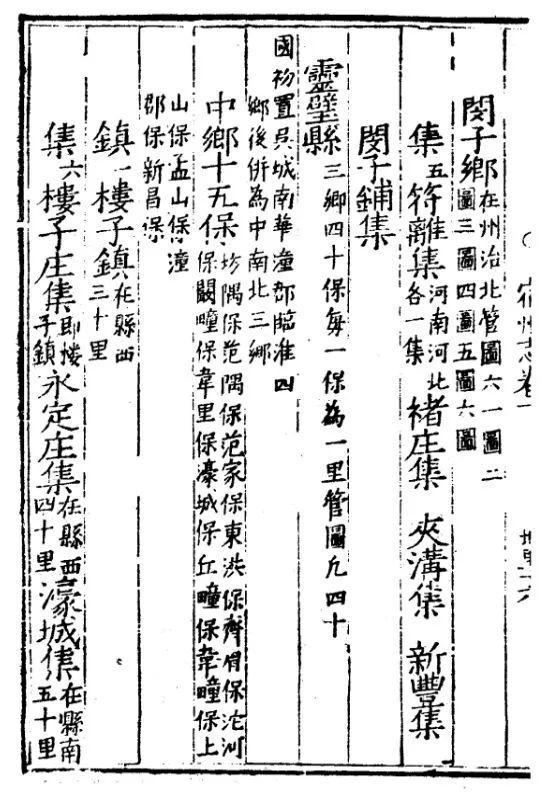 宿州志卷一
閔子鄉在州治北管圖六一圖二圖三圖四圖五圖六圖
集五符離集河南河北各一集褚庄集夾溝集新豐集
閔子鋪集
靈璧縣三鄉四十保每一保為一里管圖凡四十
國初置吳城南華潼郡臨淮四鄉後併為中南北三鄉
中鄉十五保坊隅保范隅保范家保東洪保齊眉保沱河保闕疃保韋里保濠城保丘疃保韋疃保上
山保孟山保潼郡保新昌保
鎮一樓子鎮在縣西三十里
集六樓子庄集即樓子鎮永定庄集在縣西四十里濠城集在縣南五十里